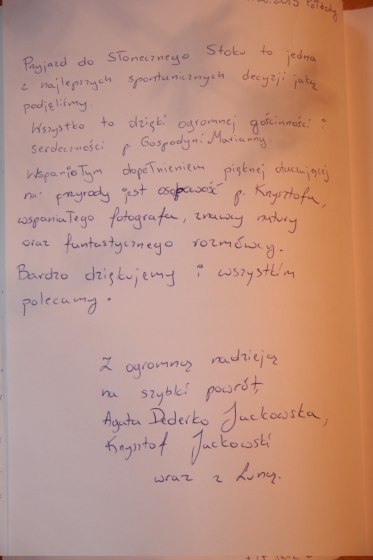 2015 Połechy
Przyjazd do Słonecznego Stoku to jedna
z najlepszych spontanicznych decyzji jaką
podjęliśmy.
Wszystko to dzięki ogromnej gościnności i
serdeczności p Gospodyni Marianny.
Wspaniałym dopełnieniem pięknej otaczającej
nas przyrody jest osobowość p. Krzysztofa,
wspaniałego fotografa, znawcy natury
oraz fantastycznego rozmówcy.
Bardzo dziękujemy i wszystkim
polecamy.
Z ogromną nadzieją
na szybki powrót,
Agata Dederko Jackowska,
Krzysztof Jackowski
wraz z Luną.